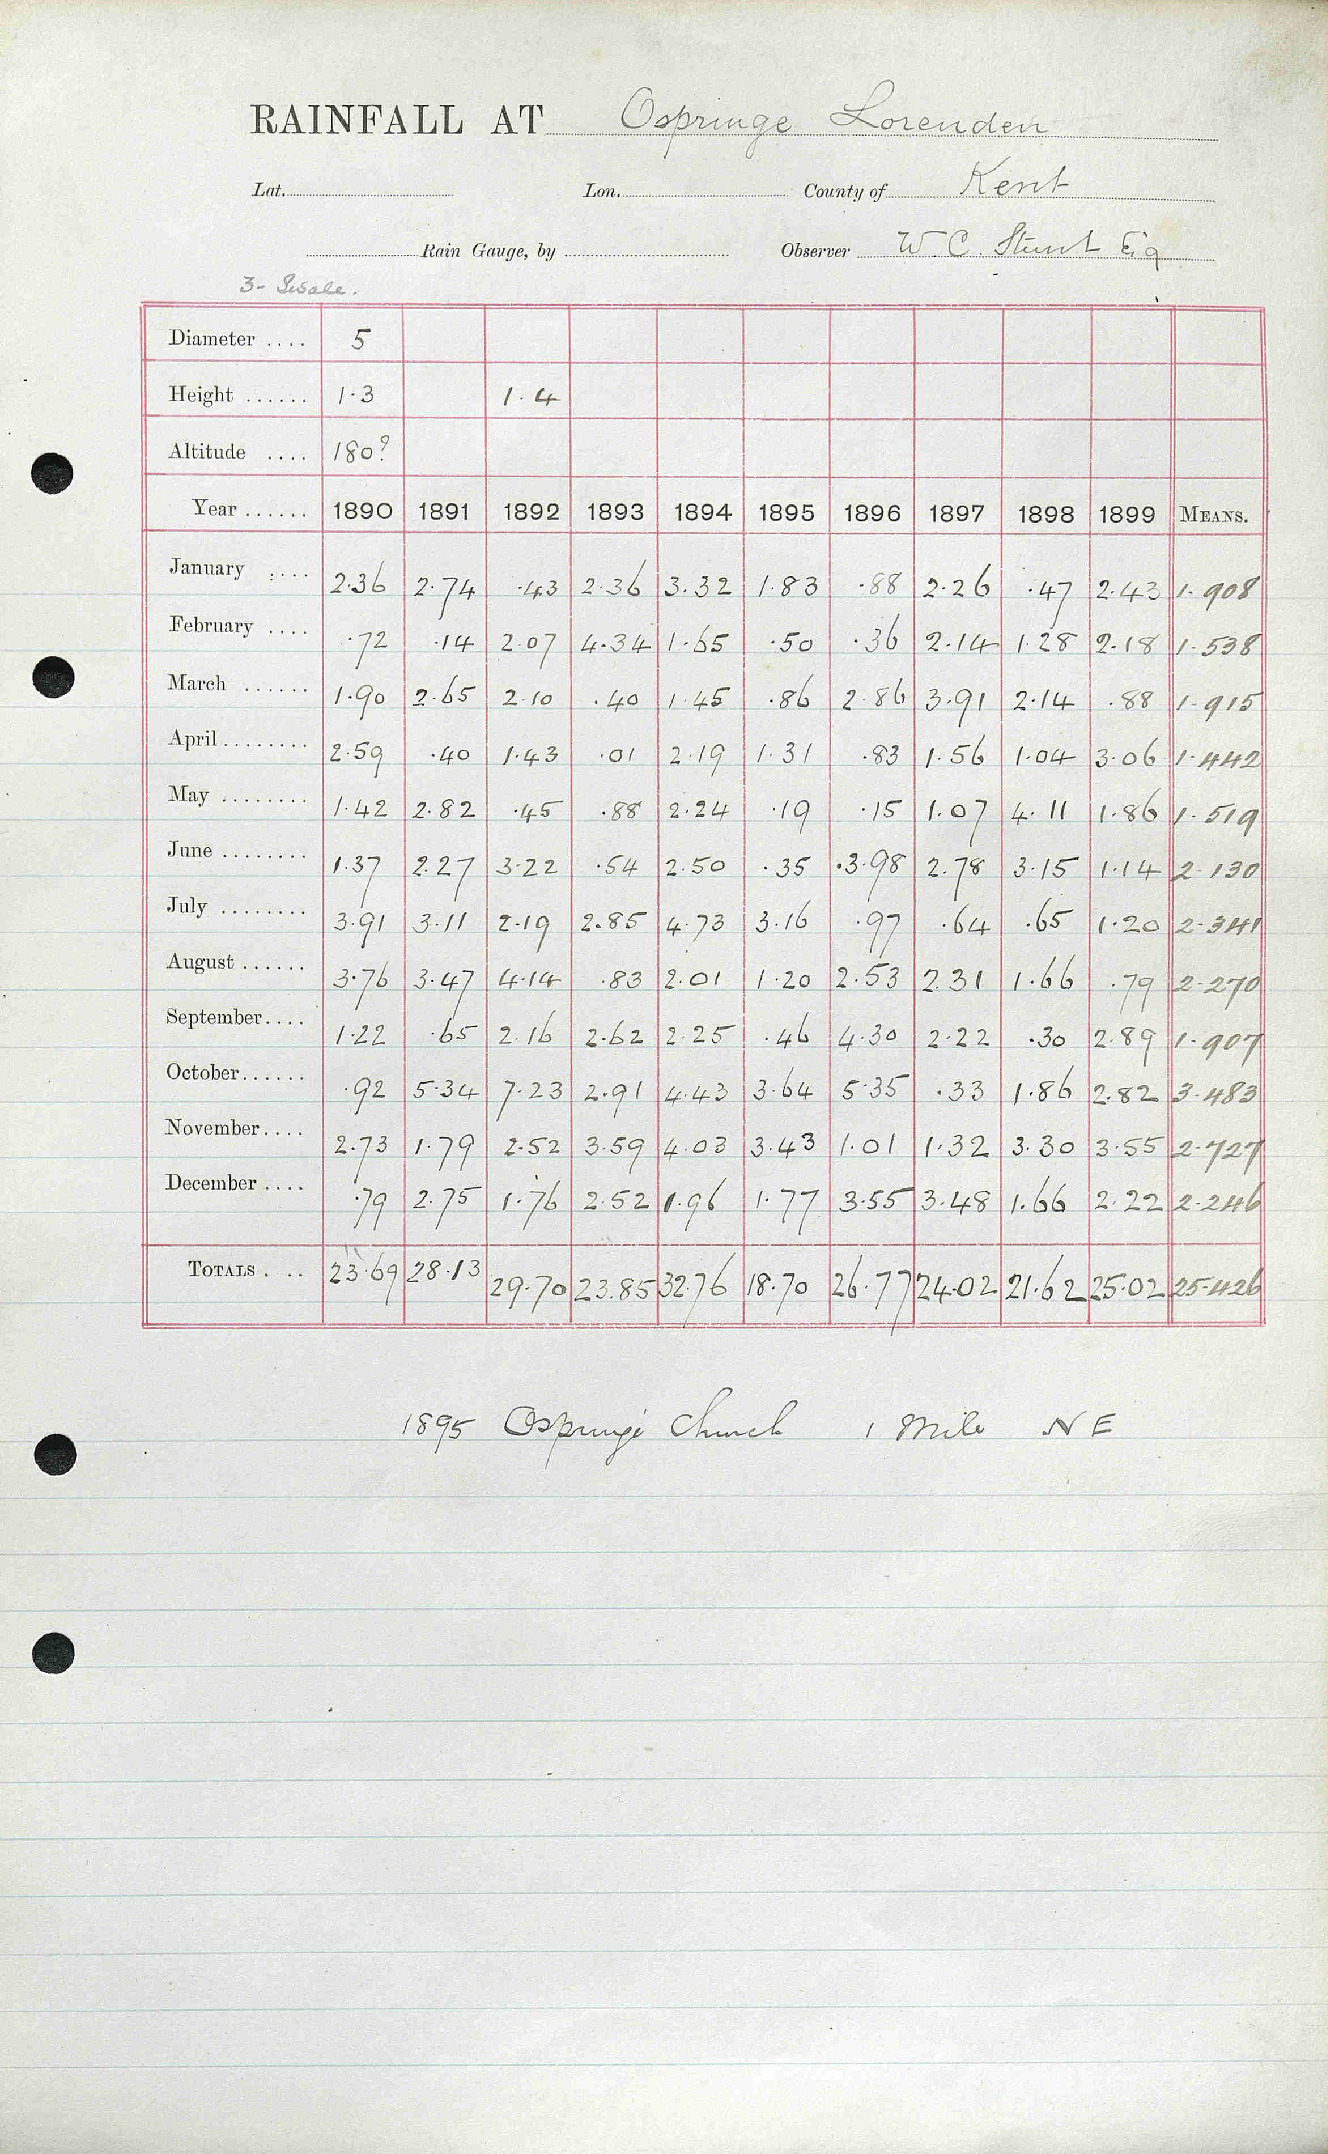 RAINFALL AT Ospringe Lorenden
Lat. Lon. County of Kent
Rain Gauge, by Observer W. C. Stunt Esq
3- Swale.
Diameter .... 5
Height ...... 1.3 1.4
Altitude .... 180?
Year ...... 1890 1891 1892 1893 1894 1895 1896 1897 1898 1899 MEANS.
January .... 2.36 2.74 .43 2.36 3.32 1.83 .88 2.26 .47 2.43 1.908
February .... .72 .14 2.07 4.34 1.65 .50 .36 2.14 1.28 2.18 1.538
March ...... 1.90 2.65 2.10 .40 1.45 .86 2.86 3.91 2.14 .88 1.915
April ........ 2.59 .40 1.43 .01 2.19 1.31 .83 1.56 1.04 3.06 1.442
May ........ 1.42 2.82 .45 .88 2.24 .19 .15 1.07 4.11 1.86 1.519
June ........ 1.37 2.27 3.22 .54 2.50 .35 .3.98 2.78 3.15 1.14 2.130
July ........ 3.91 3.11 2.19 2.85 4.73 3.16 .97 .64 .65 1.20 2.341
August ...... 3.76 3.47 4.14 .83 2.01 1.20 2.53 2.31 1.66 .79 2.270
September .... 1.22 .65 2.16 2.62 2.25 .46 4.30 2.22 .30 2.89 1.907
October ...... .92 5.34 7.23 2.91 4.43 3.64 5.35 .33 1.86 2.82 3.483
November .... 2.73 1.79 2.52 3.59 4.03 3.43 1.01 1.32 3.30 3.55 2.727
December .... .79 2.75 1.76 2.52 1.96 1.77 3.55 3.48 1.66 2.22 2.246
TOTALS . .. 23.69 28.13 29.70 23.85 32.76 18.70 26.77 24.02 21.62 25.02 25.426
1895 Ospringe Church 1 Mile NE